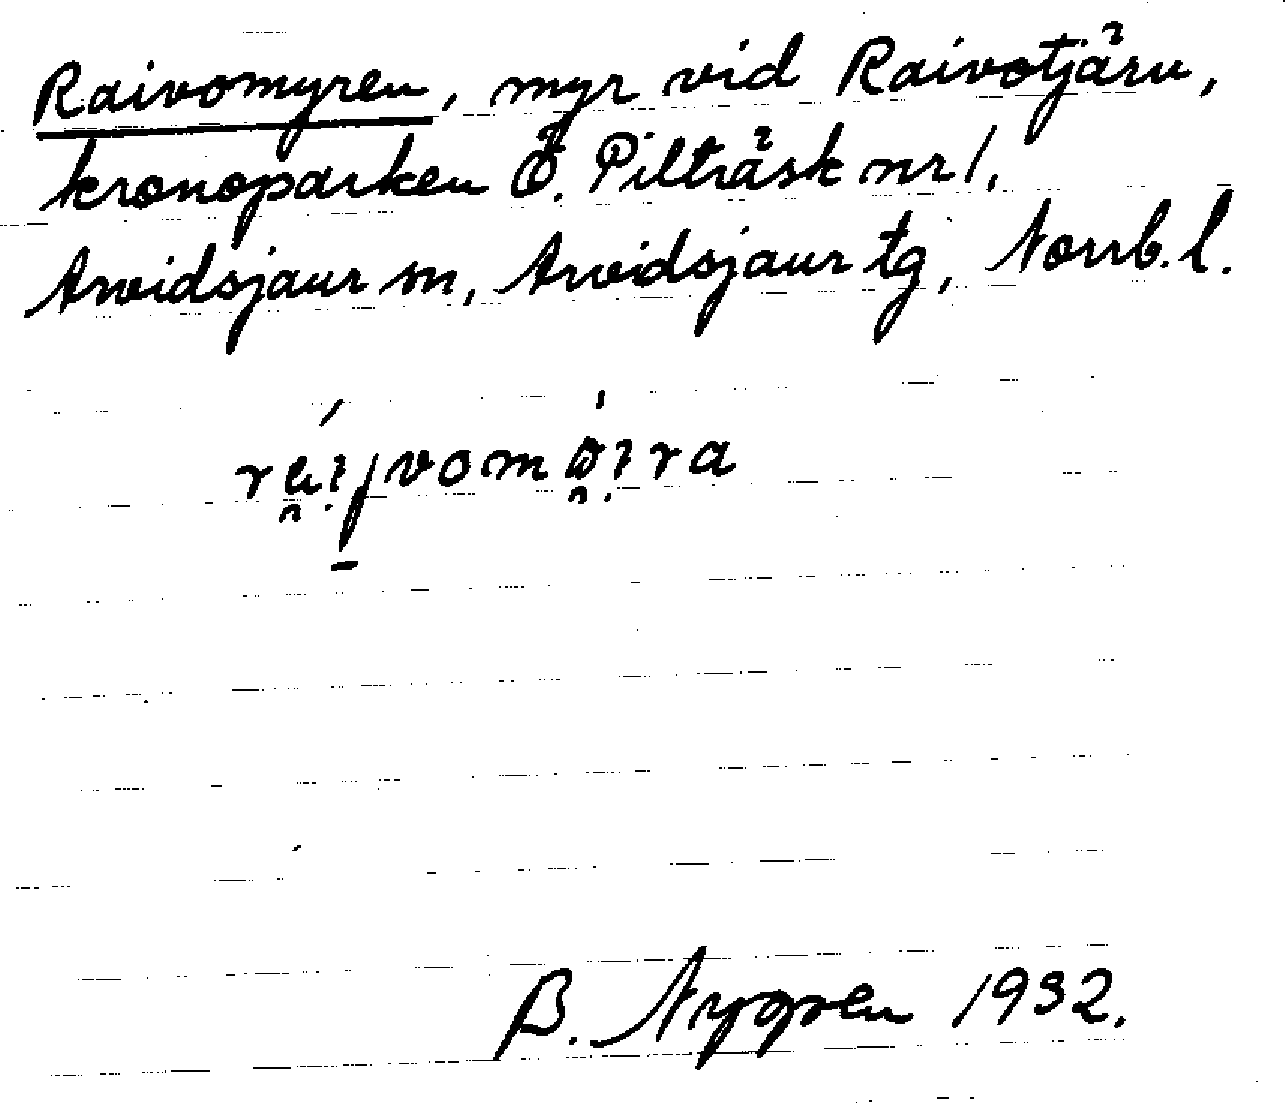 Raivomyren, myr vid Raivotjärn,
kronoparken Ö. Pilträsk nr 1,
Arvidsjaur sn, Arvidsjaur tg, Norrb. l.
B. Nygren 1932.